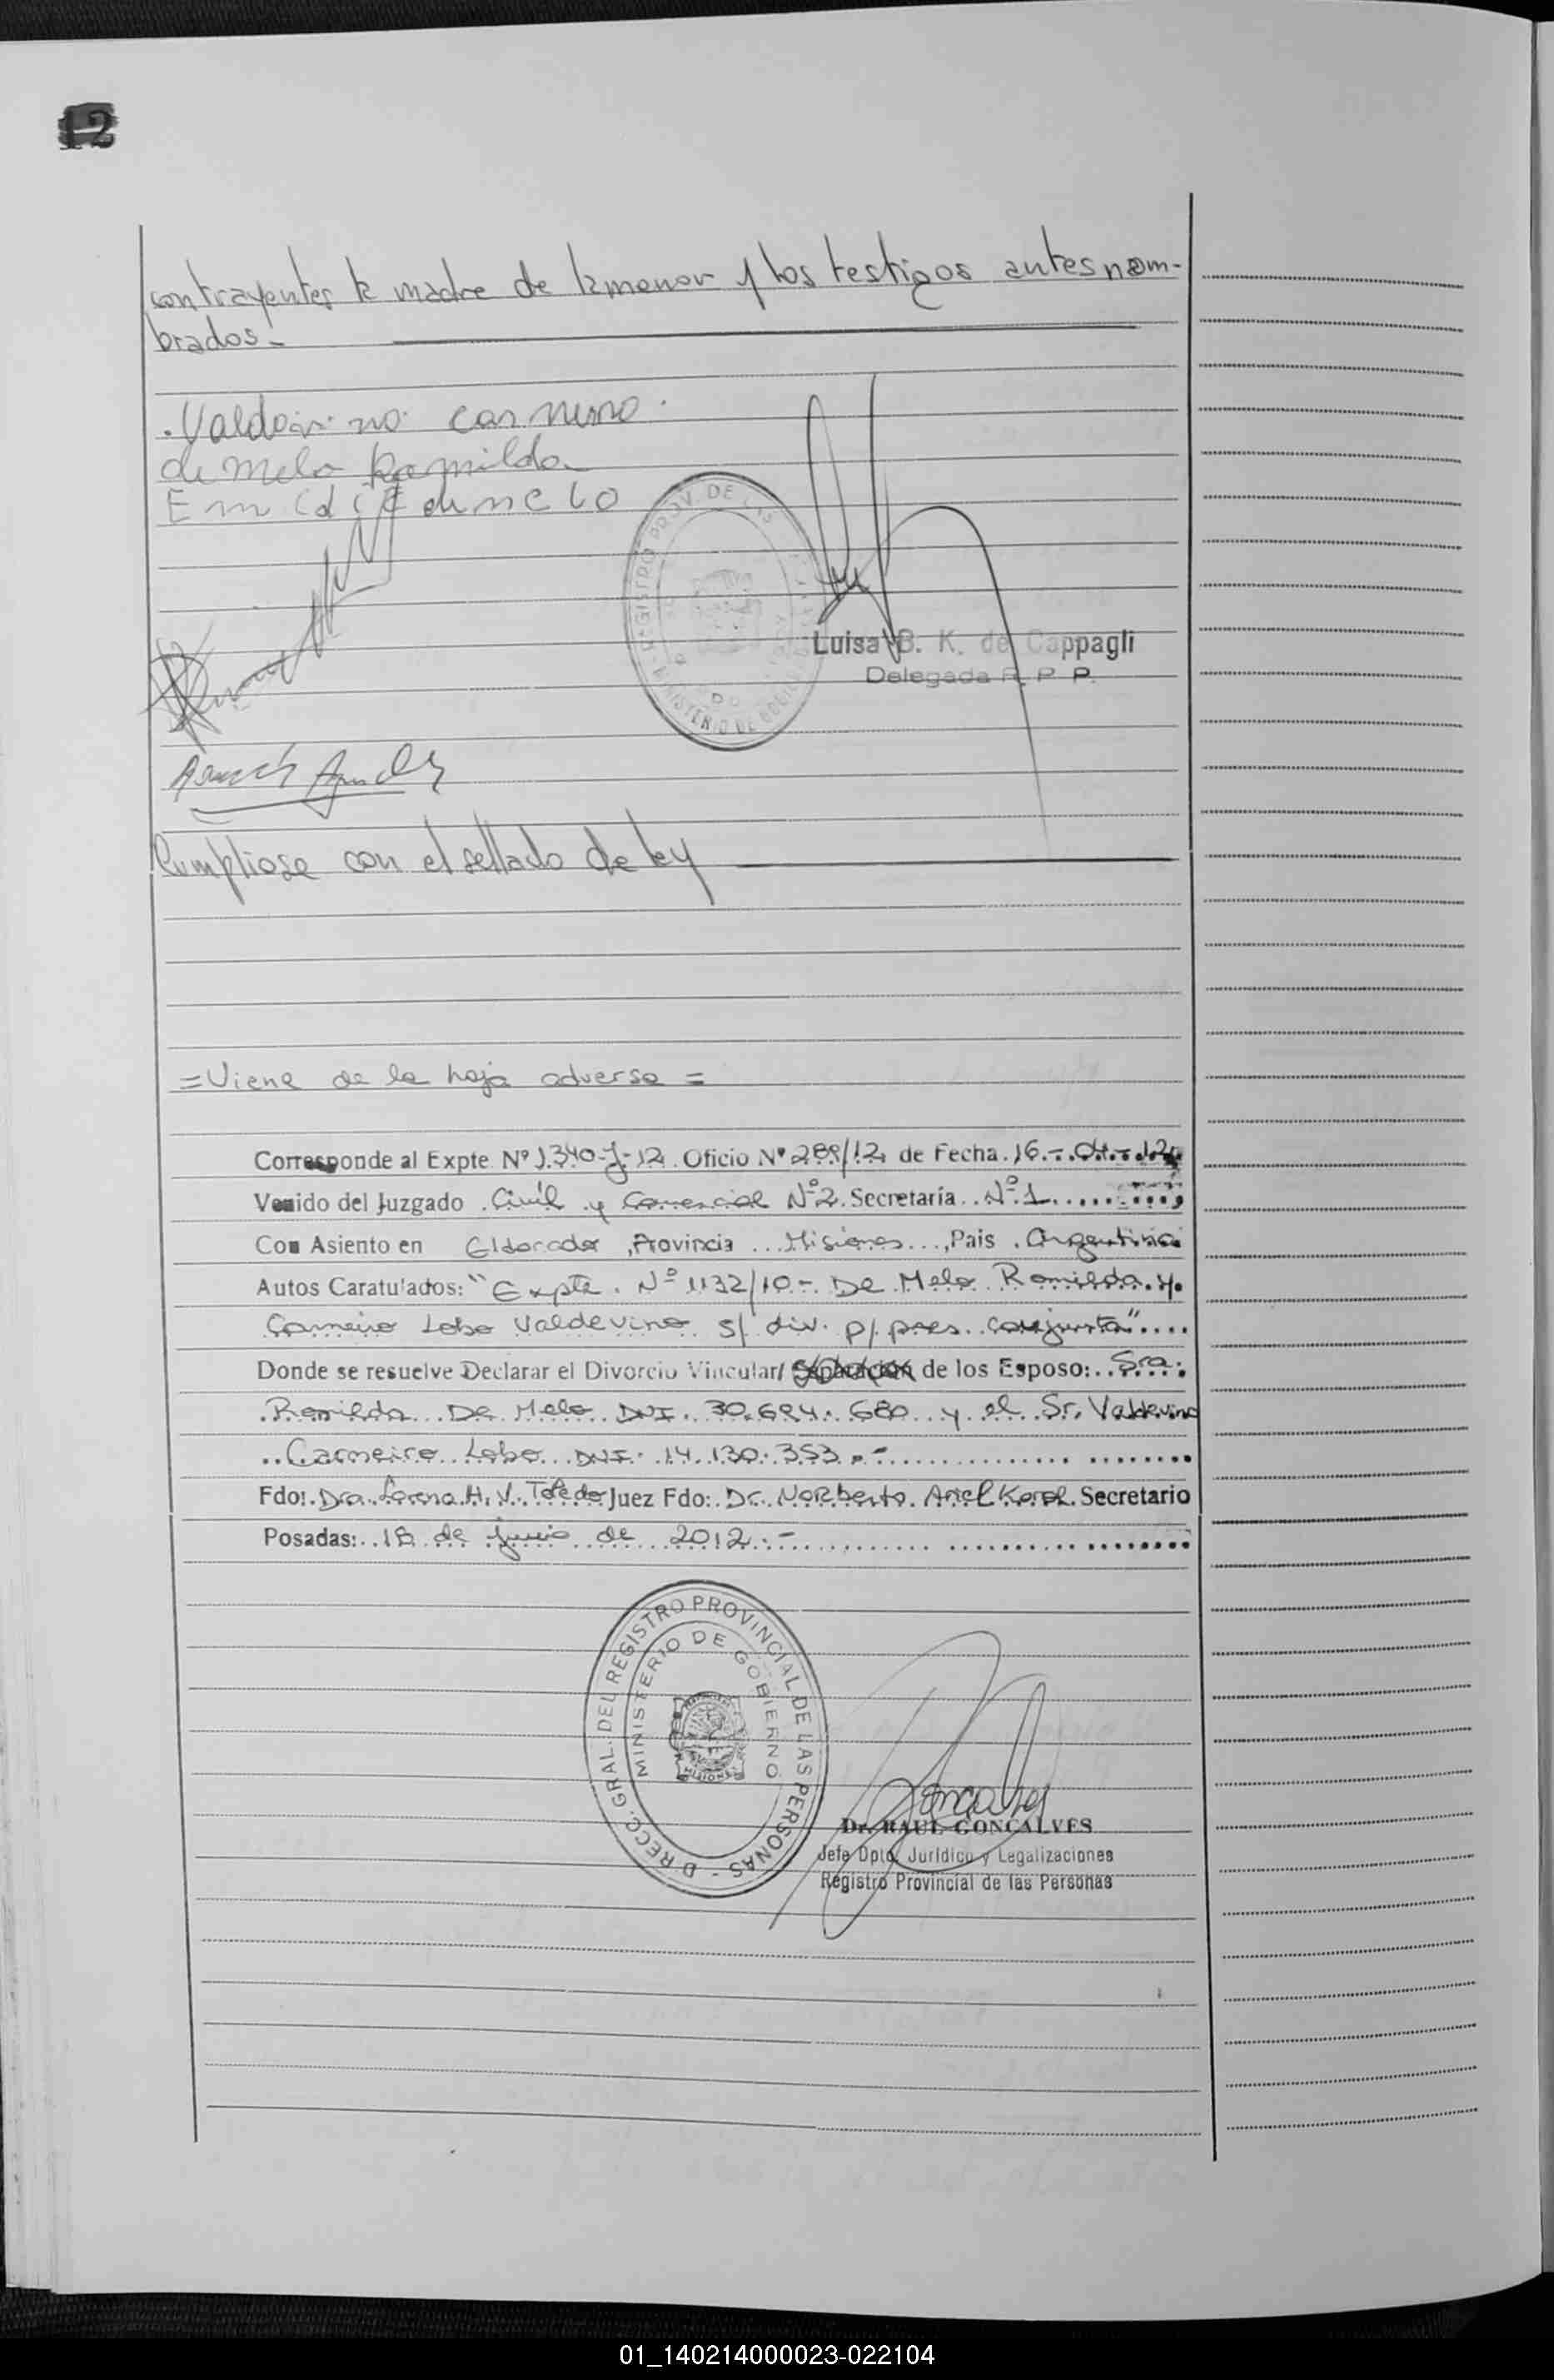 12
contrayentes la madre de la menor y los testigos antes nom-
brados-
de Melo Romilda
REGISTRO PROV. DE LAS
MINISTERIO DE
Luisa B. K. de Cappagli
Delegada R. P. P.
Cumpliose con el sellado de ley
=Viene de la hoja adversa =
Corresponde al Expte Nº 1340-J-12 Oficio Nº 289/12 de Fecha 16-04-12
Venido del Juzgado Civil y Comercial Nº2. Secretaría Nº1
Con Asiento en Eldorado, Provincia Misiones, Pais Argentina
Autos Caratulados: "Expte. Nº 1132/10- De Melo Romilda y
Carneiro Lobo Valdevino s/ div. p/ pres. conjunta"
Donde se resuelve Declarar el Divorcio Vincular/ Separación de los Esposo: Sra.
Romilda De Melo DNI. 30.694.680 y el Sr. Valdevino
Carneiro Lobo DNI. 14.130.353.-
Fdo: Dra. Lorena H. V. Toledo Juez Fdo: Dr. Norberto Ariel Korol. Secretario
Posadas: 18 de junio de 2012.-
DIRECC. GRAL. DEL REGISTRO PROVINCIAL DE LAS PERSONAS -
MINISTERIO DE GOBIERNO
MISIONES
Dr. RAUL GONCALVES
Jefe Dpto. Jurídico y Legalizaciones
Registro Provincial de las Personas
01_140214000023-022104